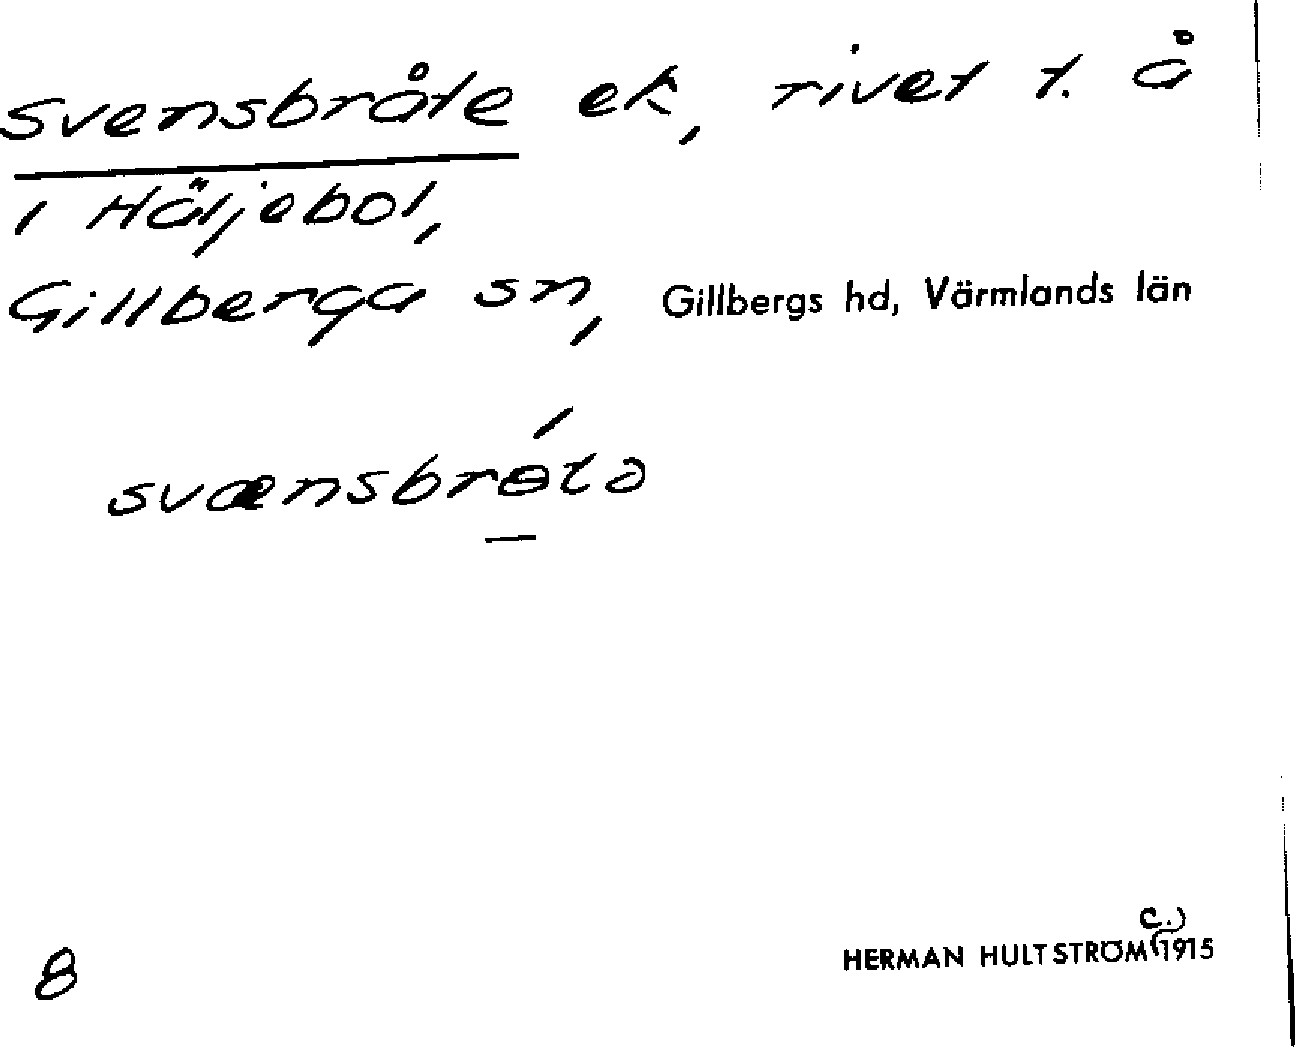 Svensbråte ek, rivet t. å
i Häljebol,
Gillberga sn, Gillbergs hd, Värmlands län
svænsbrɵ́tə
8
HERMAN HULTSTRÖM (c.) 1915